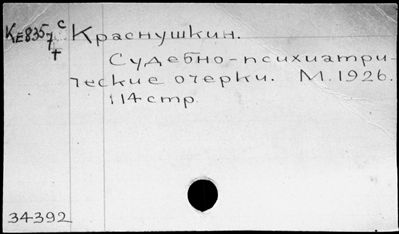 KE835/7 c Краснушкин.
+
Судебно-психиатри-
ческие очерки. М.1926.
114стр.
34392